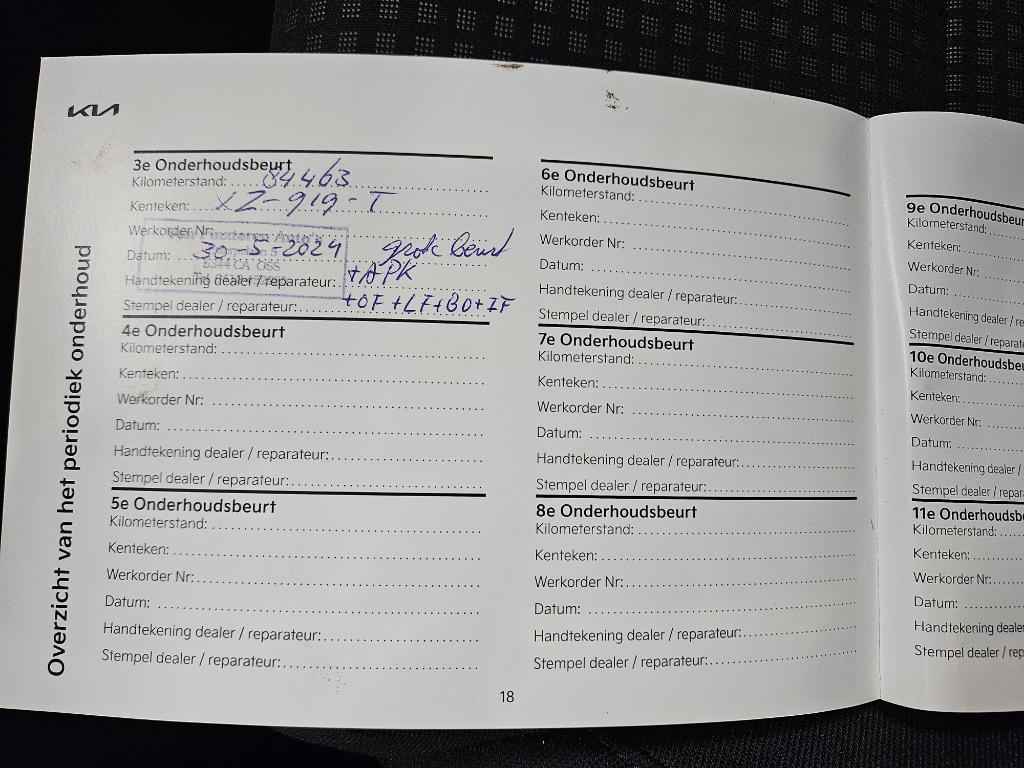 KIA
Overzicht van het periodiek onderhoud
3e Onderhoudsbeurt
Kilometerstand: 84463
Kenteken: XZ-919-T
Werkorder Nr:
Datum: 30-5-2024 grote beurt
5344 CA OSS
+APK
Handtekening dealer / reparateur:
Stempel dealer / reparateur: +OF+LF+BO+IF
4e Onderhoudsbeurt
Kilometerstand:
Kenteken:
Werkorder Nr:
Datum:
Handtekening dealer / reparateur:
Stempel dealer / reparateur:
5e Onderhoudsbeurt
Kilometerstand:
Kenteken:
Werkorder Nr:
Datum:
Handtekening dealer / reparateur:
Stempel dealer / reparateur:
6e Onderhoudsbeurt
Kilometerstand:
Kenteken:
Werkorder Nr:
Datum:
Handtekening dealer / reparateur:
Stempel dealer / reparateur:
7e Onderhoudsbeurt
Kilometerstand:
Kenteken:
Werkorder Nr:
Datum:
Handtekening dealer / reparateur:
Stempel dealer / reparateur:
8e Onderhoudsbeurt
Kilometerstand:
Kenteken:
Werkorder Nr:
Datum:
Handtekening dealer / reparateur:
Stempel dealer / reparateur:
18
9e Onderhoudsbeu
Kilometerstand:
Kenteken:
Werkorder Nr:
Datum:
Handtekening dealer /
Stempel dealer / reparate
10e Onderhoudsbeu
Kilometerstand:
Kenteken:
Werkorder Nr:
Datum:
Handtekening dealer /
Stempel dealer / repara
11e Onderhoudsb
Kilometerstand:
Kenteken:
Werkorder Nr:
Datum:
Handtekening dealer
Stempel dealer / rep